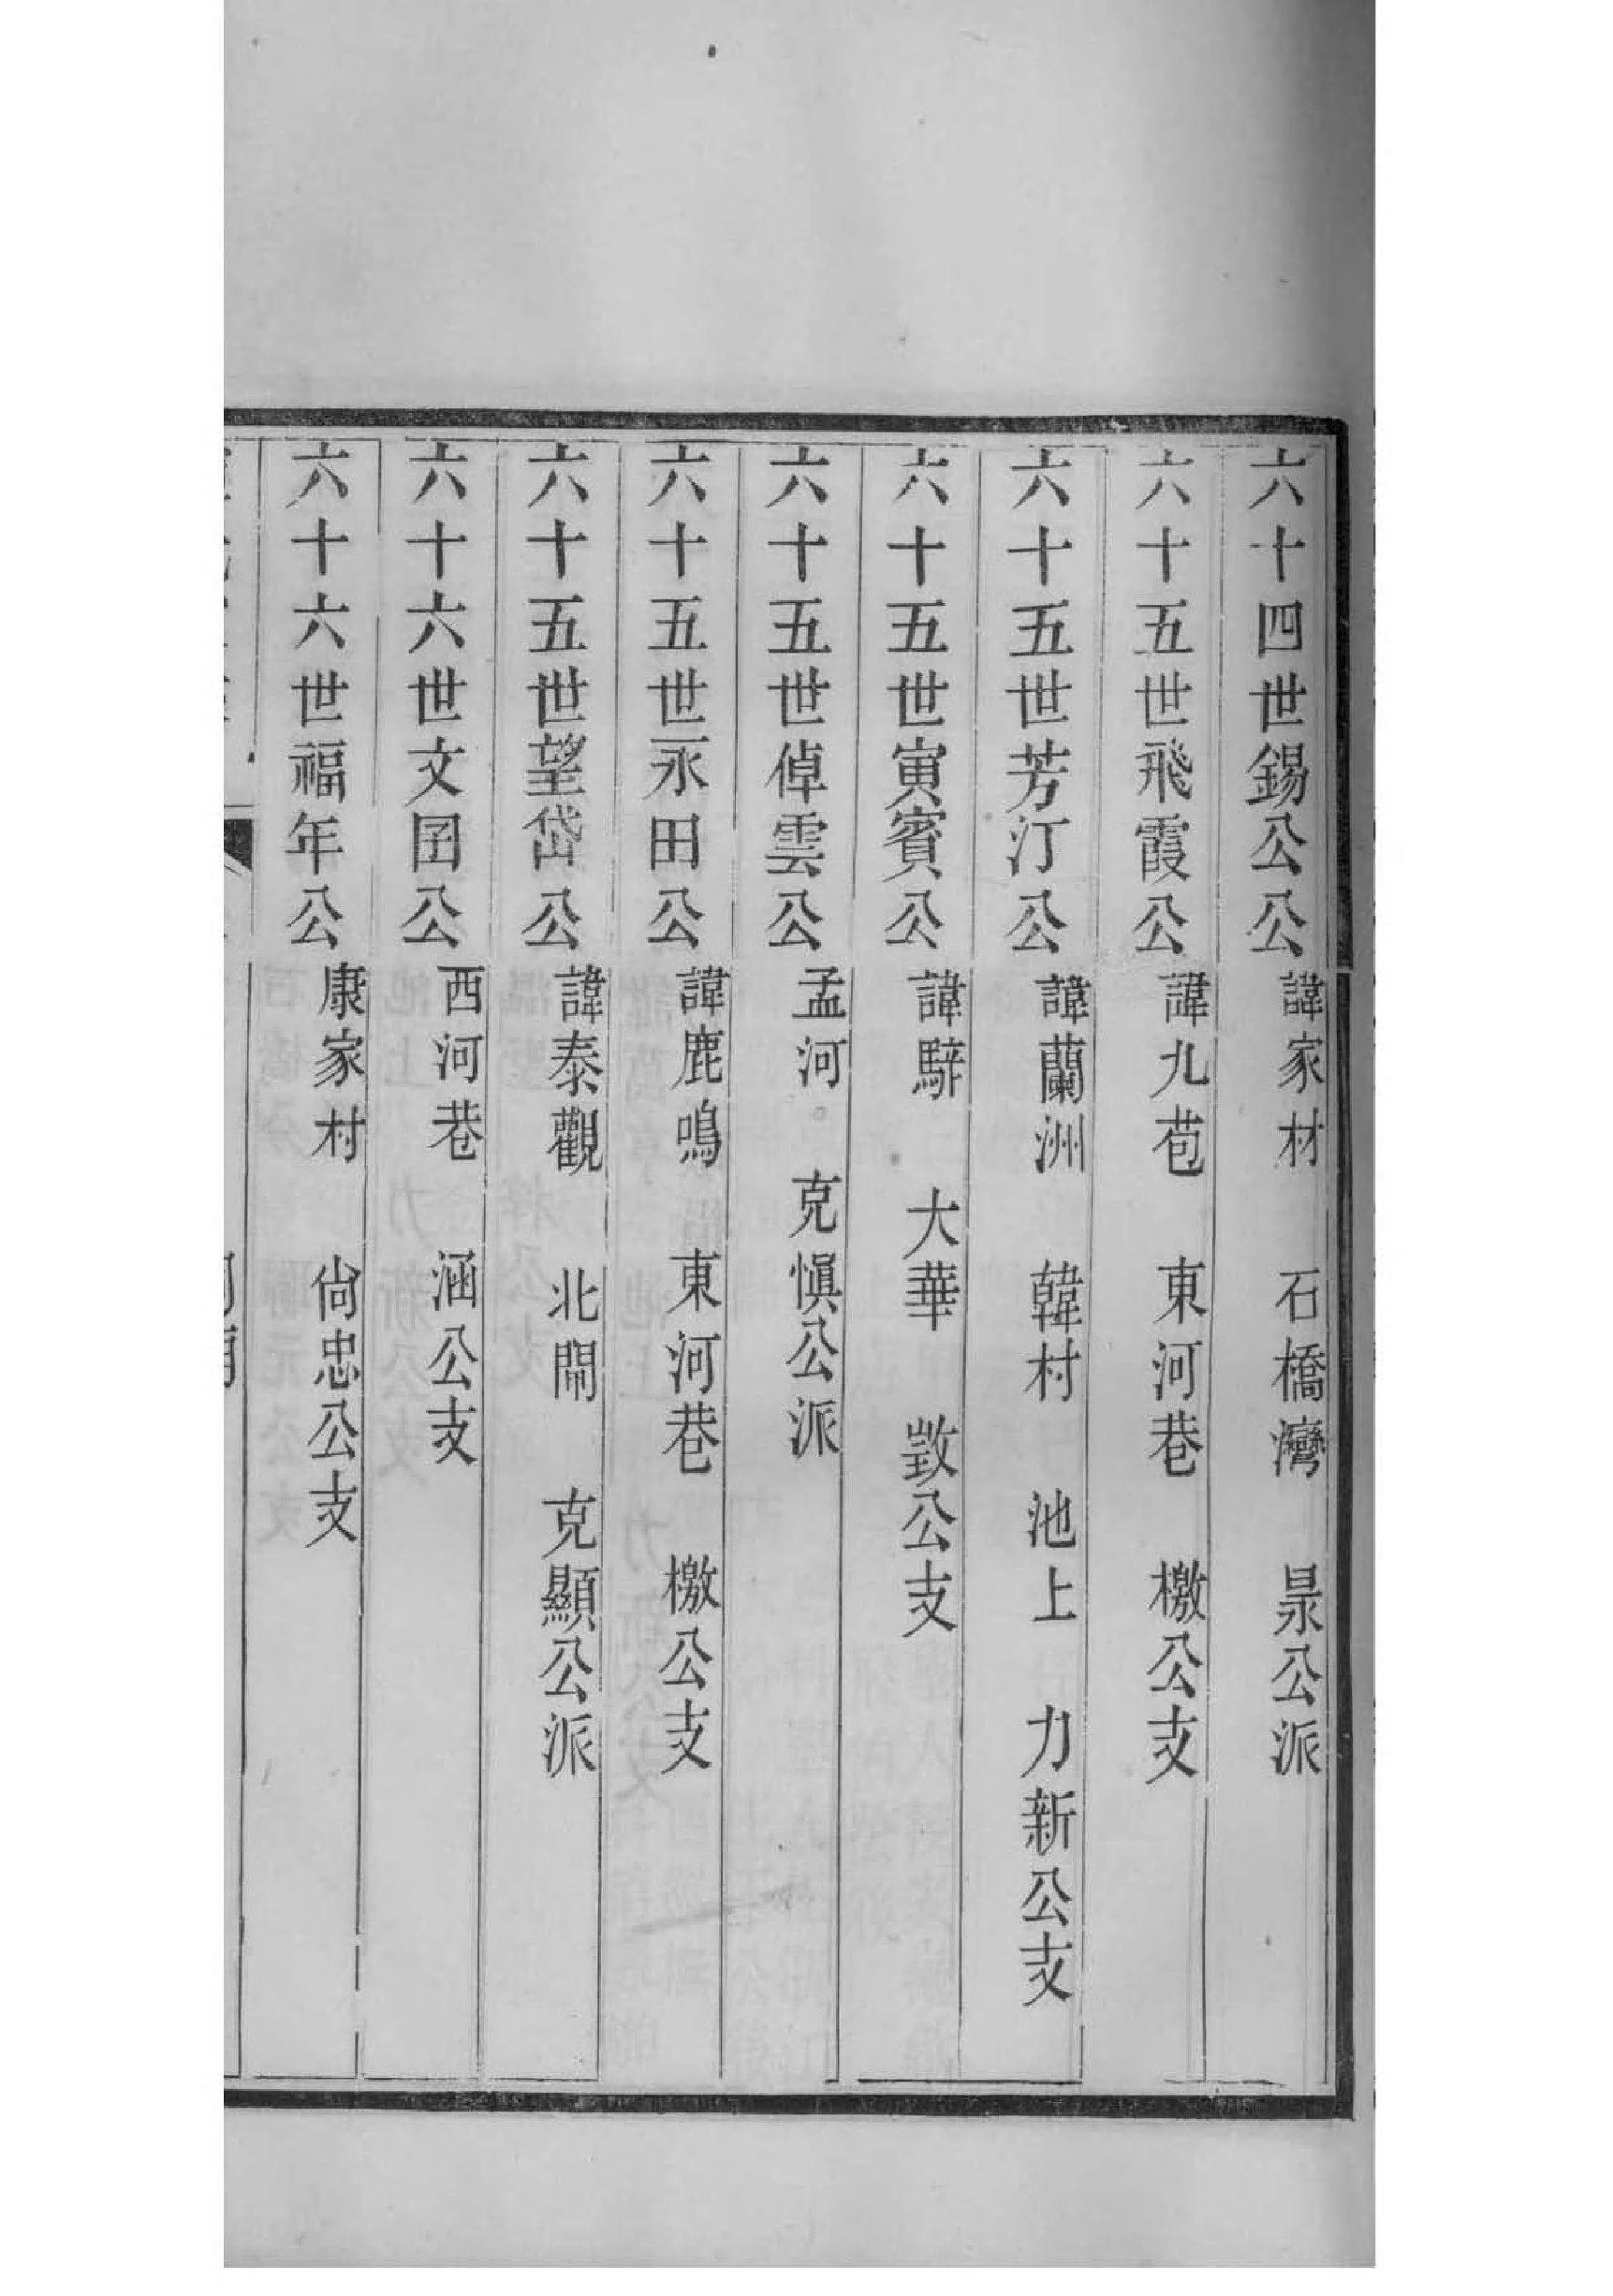 六十四世錫公公 諱家材 石橋灣 㫟公派
六十五世飛霞公 諱九苞 東河巷 檄公支
六十五世芳汀公 諱蘭洲 韓村 池上 力新公支
六十五世寅賓公 諱騑 大華 敳公支
六十五世倬雲公 孟河 克愼公派
六十五世永田公 諱鹿鳴 東河巷 檄公支
六十五世望岱公 諱泰觀 北閘 克顯公派
六十六世文囝公 西河巷 涵公支
六十六世福年公 康家村 尙忠公支